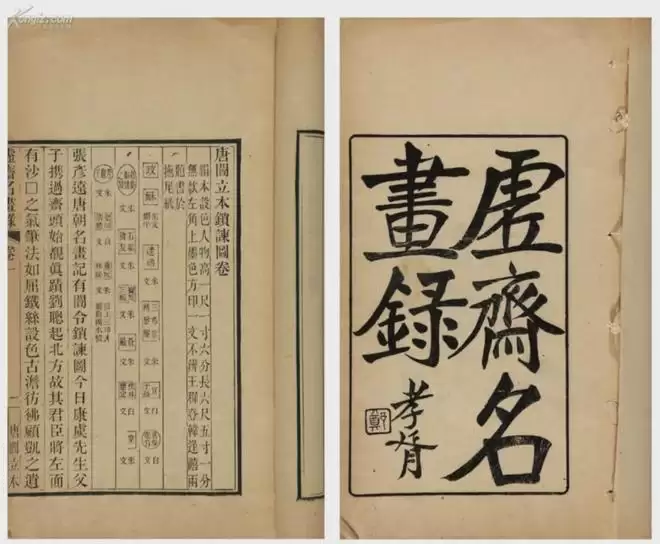 虛齋名
畫錄
孝胥
鄭
唐閻立本鎖諫圖卷
絹本設色人物高一尺一寸六分長六尺五寸一分
無款左角上墨色方印一文不辨王穉登韓逢禧兩
題書於
拖尾紙
張彥遠唐朝名畫記有閻令鎖諫圖今日康虞先生父
子攜過齋頭始觀眞蹟劉聰起北方故其君臣將左面
有沙□之氣筆法如屈鐵絲設色古澹彷彿顧凱之遺
虛齋名畫錄 卷一 一 唐閻立本